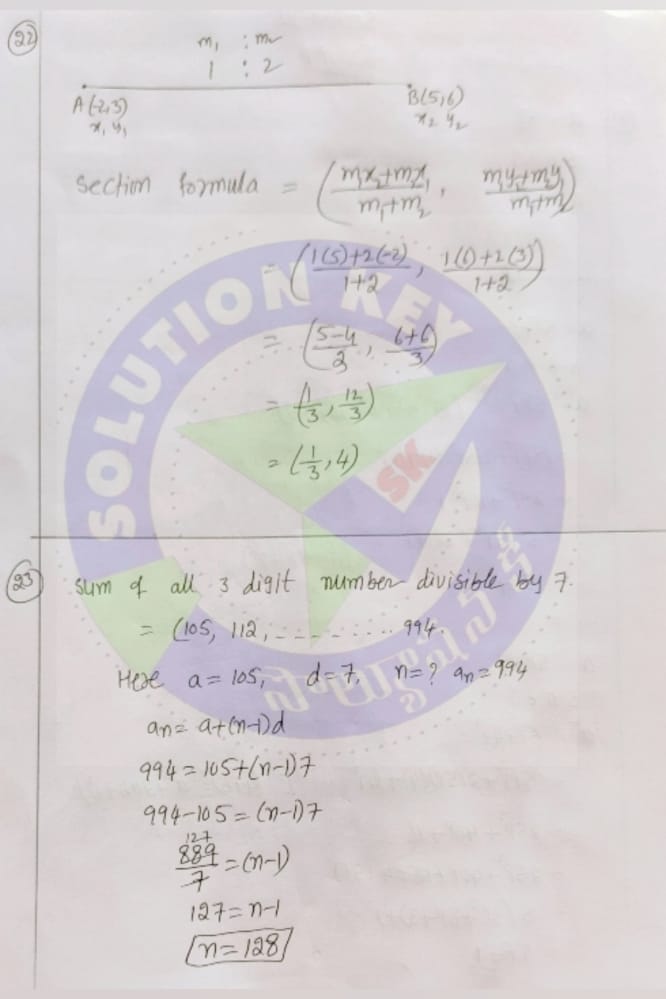 22
m₁ : m₂
1 : 2
A(-2,3) B(5,6)
x₁ y₁ x₂ y₂
Section formula = (m₁x₂+m₂x₁/m₁+m₂, m₁y₂+m₂y₁/m₁+m₂)
= (1(5)+2(-2)/1+2, 1(6)+2(3)/1+2)
= (5-4/3, 6+6/3)
= (1/3, 12/3)
= (1/3, 4)
SOLUTION KEY
SK
23
Sum of all 3 digit number divisible by 7.
= (105, 112, ---------- 994.
Here a = 105, d=7, n=? an = 994
an = a+(n-1)d
994 = 105+(n-1)7
994-105 = (n-1)7
127
889/7 = (n-1)
127 = n-1
n = 128